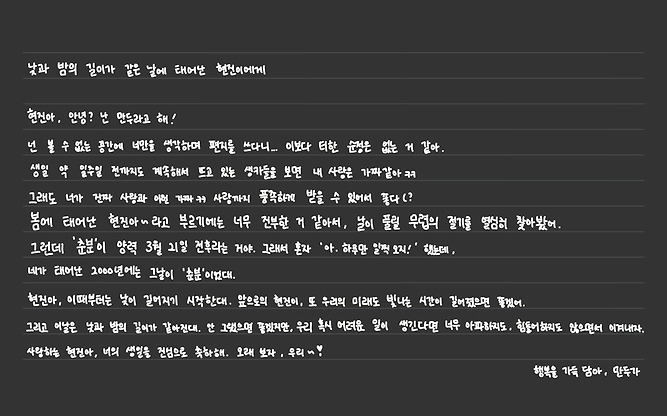 낮과 밤의 길이가 같은 날에 태어난 현진이에게
현진아, 안녕? 난 만두라고 해!
넌 볼 수 없는 공간에 너만을 생각하며 편지를 쓰다니... 이보다 더한 순정은 없는 거 같아.
생일 약 일주일 전까지도 계속해서 뜨고 있는 생카들을 보면 내 사랑은 가짜같아 ㅋㅋ
그래도 너가 진짜 사랑과 이런 가짜 ㅋㅋ 사랑까지 풍족하게 받을 수 있어서 좋다 (?
봄에 태어난 현진아~라고 부르기에는 너무 진부한 거 같아서, 날이 풀릴 무렵의 절기를 열심히 찾아봤어.
그런데 '춘분'이 양력 3월 21일 전후라는 거야. 그래서 혼자 '아. 하루만 일찍 오지!' 했는데,
네가 태어난 2000년에는 그날이 '춘분'이었대.
현진아, 이때부터는 낮이 길어지기 시작한대. 앞으로의 현진이, 또 우리의 미래도 빛나는 시간이 길어졌으면 좋겠어.
그리고 이날은 낮과 밤의 길이가 같아진대. 안 그랬으면 좋겠지만, 우리 혹시 어려운 일이 생긴다면 너무 아파하지도, 힘들어하지도 않으면서 이겨내자.
사랑하는 현진아, 너의 생일을 진심으로 축하해. 오래 보자, 우리~♡
행복을 가득 담아, 만두가